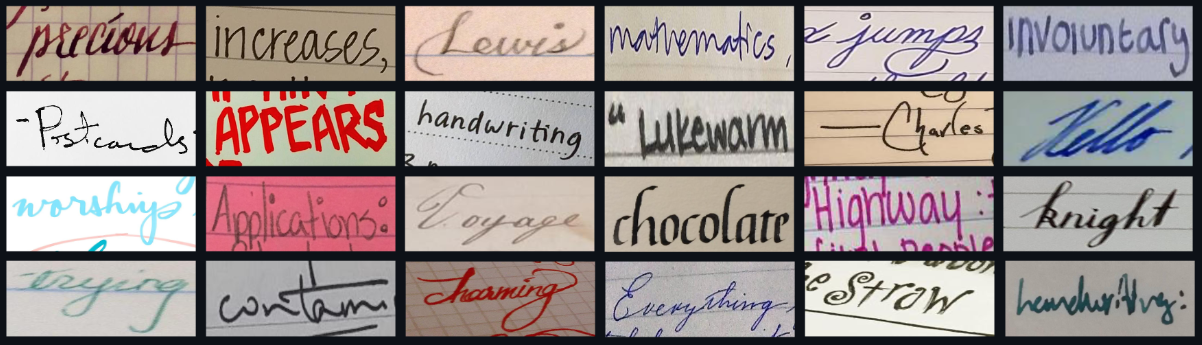 precious increases, Lewis mathematics, x jumps Involuntary
-Postcards APPEARS handwriting " Lukewarm —Charles Hello
worships Applications: Voyage chocolate Highway: knight
trying contami charming Everything, e Straw handwriting: